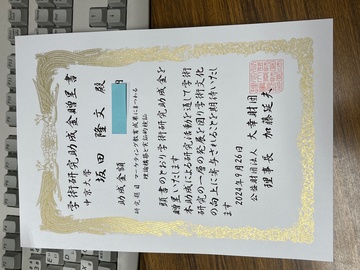 学術研究助成金贈呈書
中京大学
坂田 隆文 殿
助成金額
円
研究題目 マーケティング教育成果にまつわる
理論構築と実証的検証
頭書のとおり学術研究助成金を
贈呈いたします
本助成による研究活動を通じて学術
研究の一層の発展と国り学術文化
の向上に寄与されることを期待いたし
ます
2024年9月26日
公益財団法人 大幸財団
理事長 加藤延夫